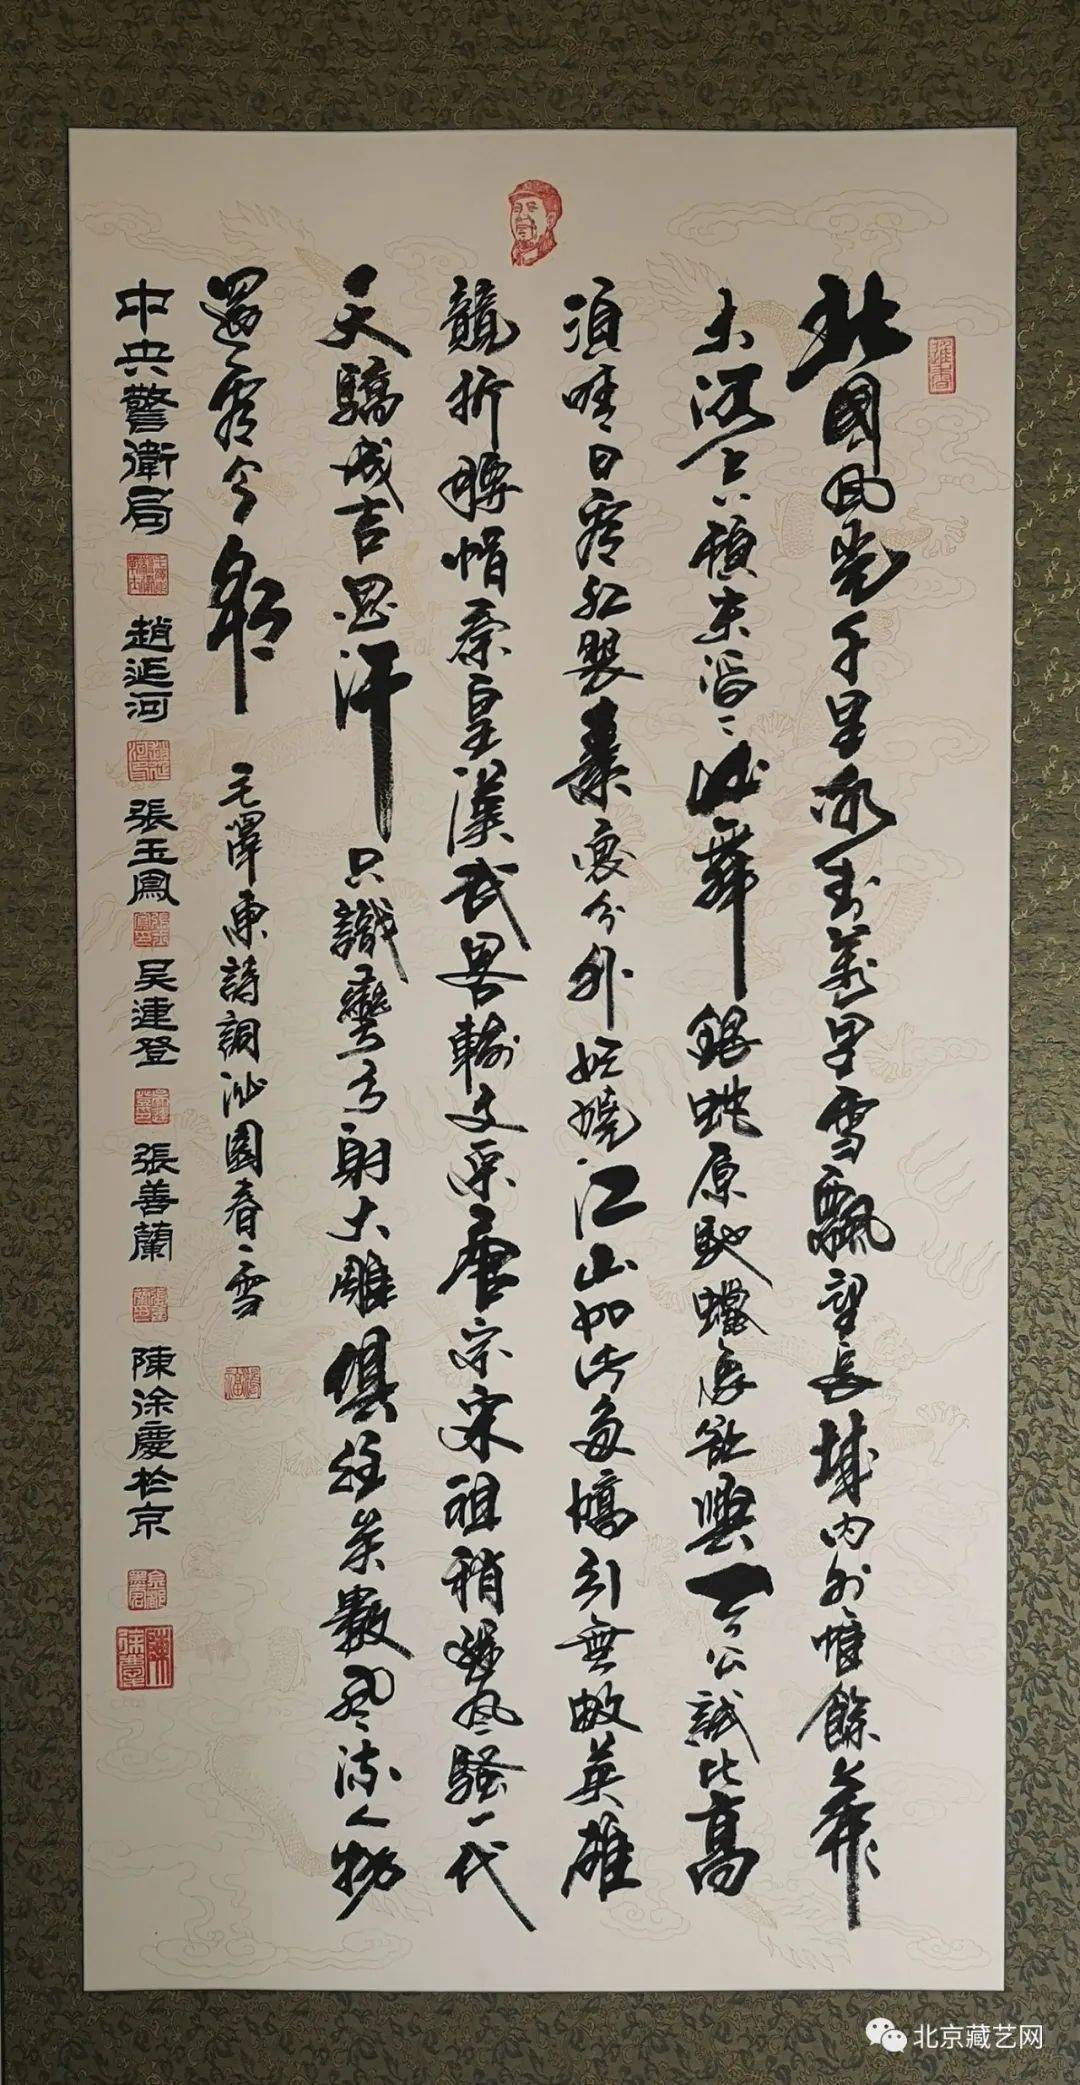 北國風光千里冰封萬里雪飄望長城內外惟餘莽〻
大河上下頓失滔〻山舞銀蛇原馳蠟象欲與天公試比高
須晴日看紅裝素裹分外妖嬈江山如此多嬌引無數英雄
競折腰惜秦皇漢武畧輸文采唐宗宋祖稍遜風騷一代
天驕成吉思汗只識彎弓射大雕俱往矣數風流人物
還看今朝 毛澤東詩詞沁園春雪
中央警衛局 趙延河 張玉鳳 吳連登 張善蘭 陳徐慶於京
北京藏艺网